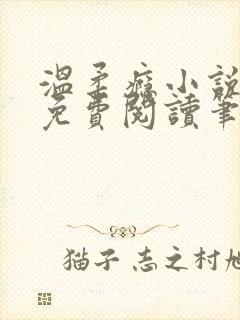 溫柔癮小說
免費閱讀筆
猫子 志之村旭